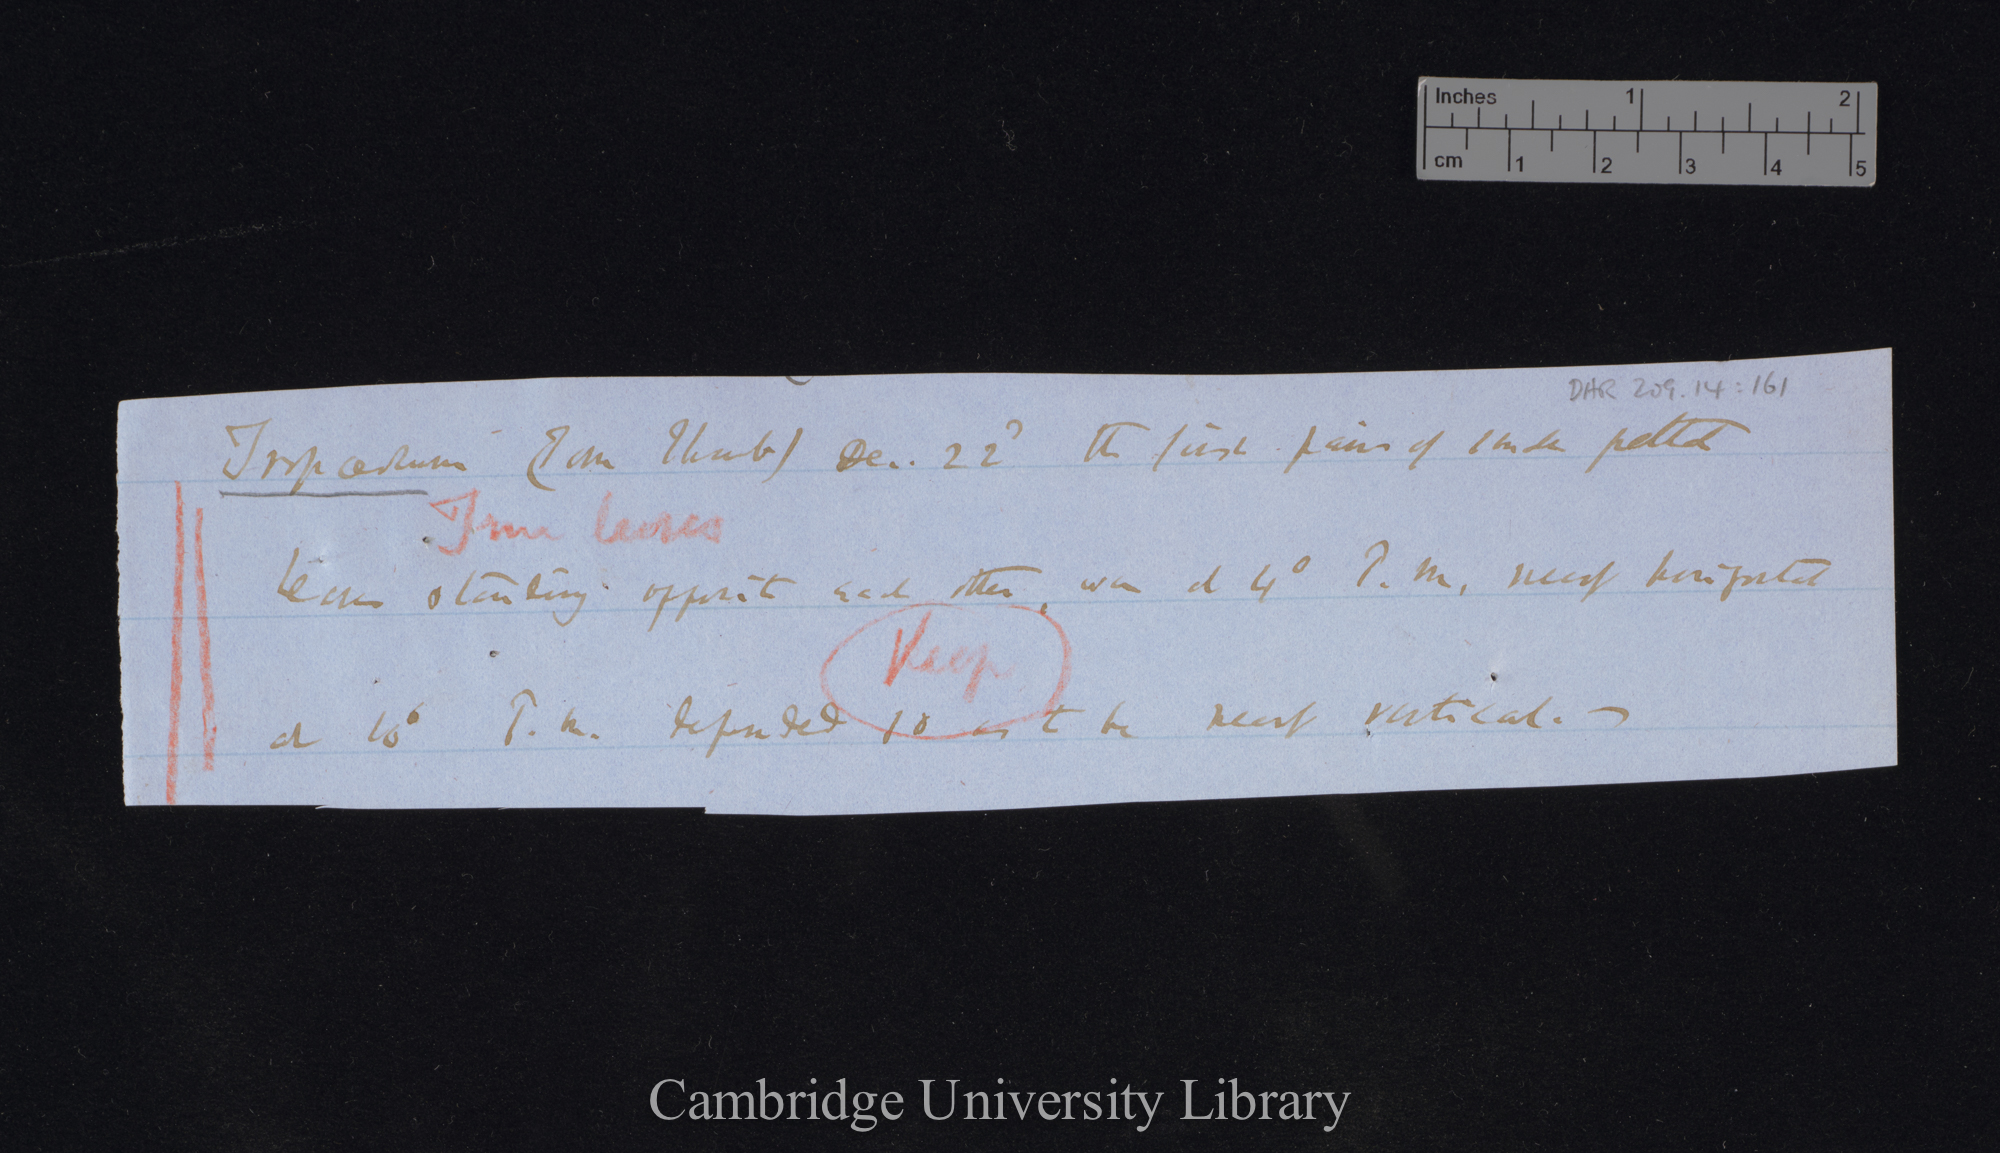 Inches 1 2
cm 1 2 3 4 5
DAR 209.14:161
Tropæolum (Tom Thumb) Dec. 22d the first pair of under peltate
True leaves
leaves standing opposite each other, were at 4o P.m, nearly horizontal
Keep
at 10o P.m. depended so as to be nearly vertical. —
Cambridge University Library